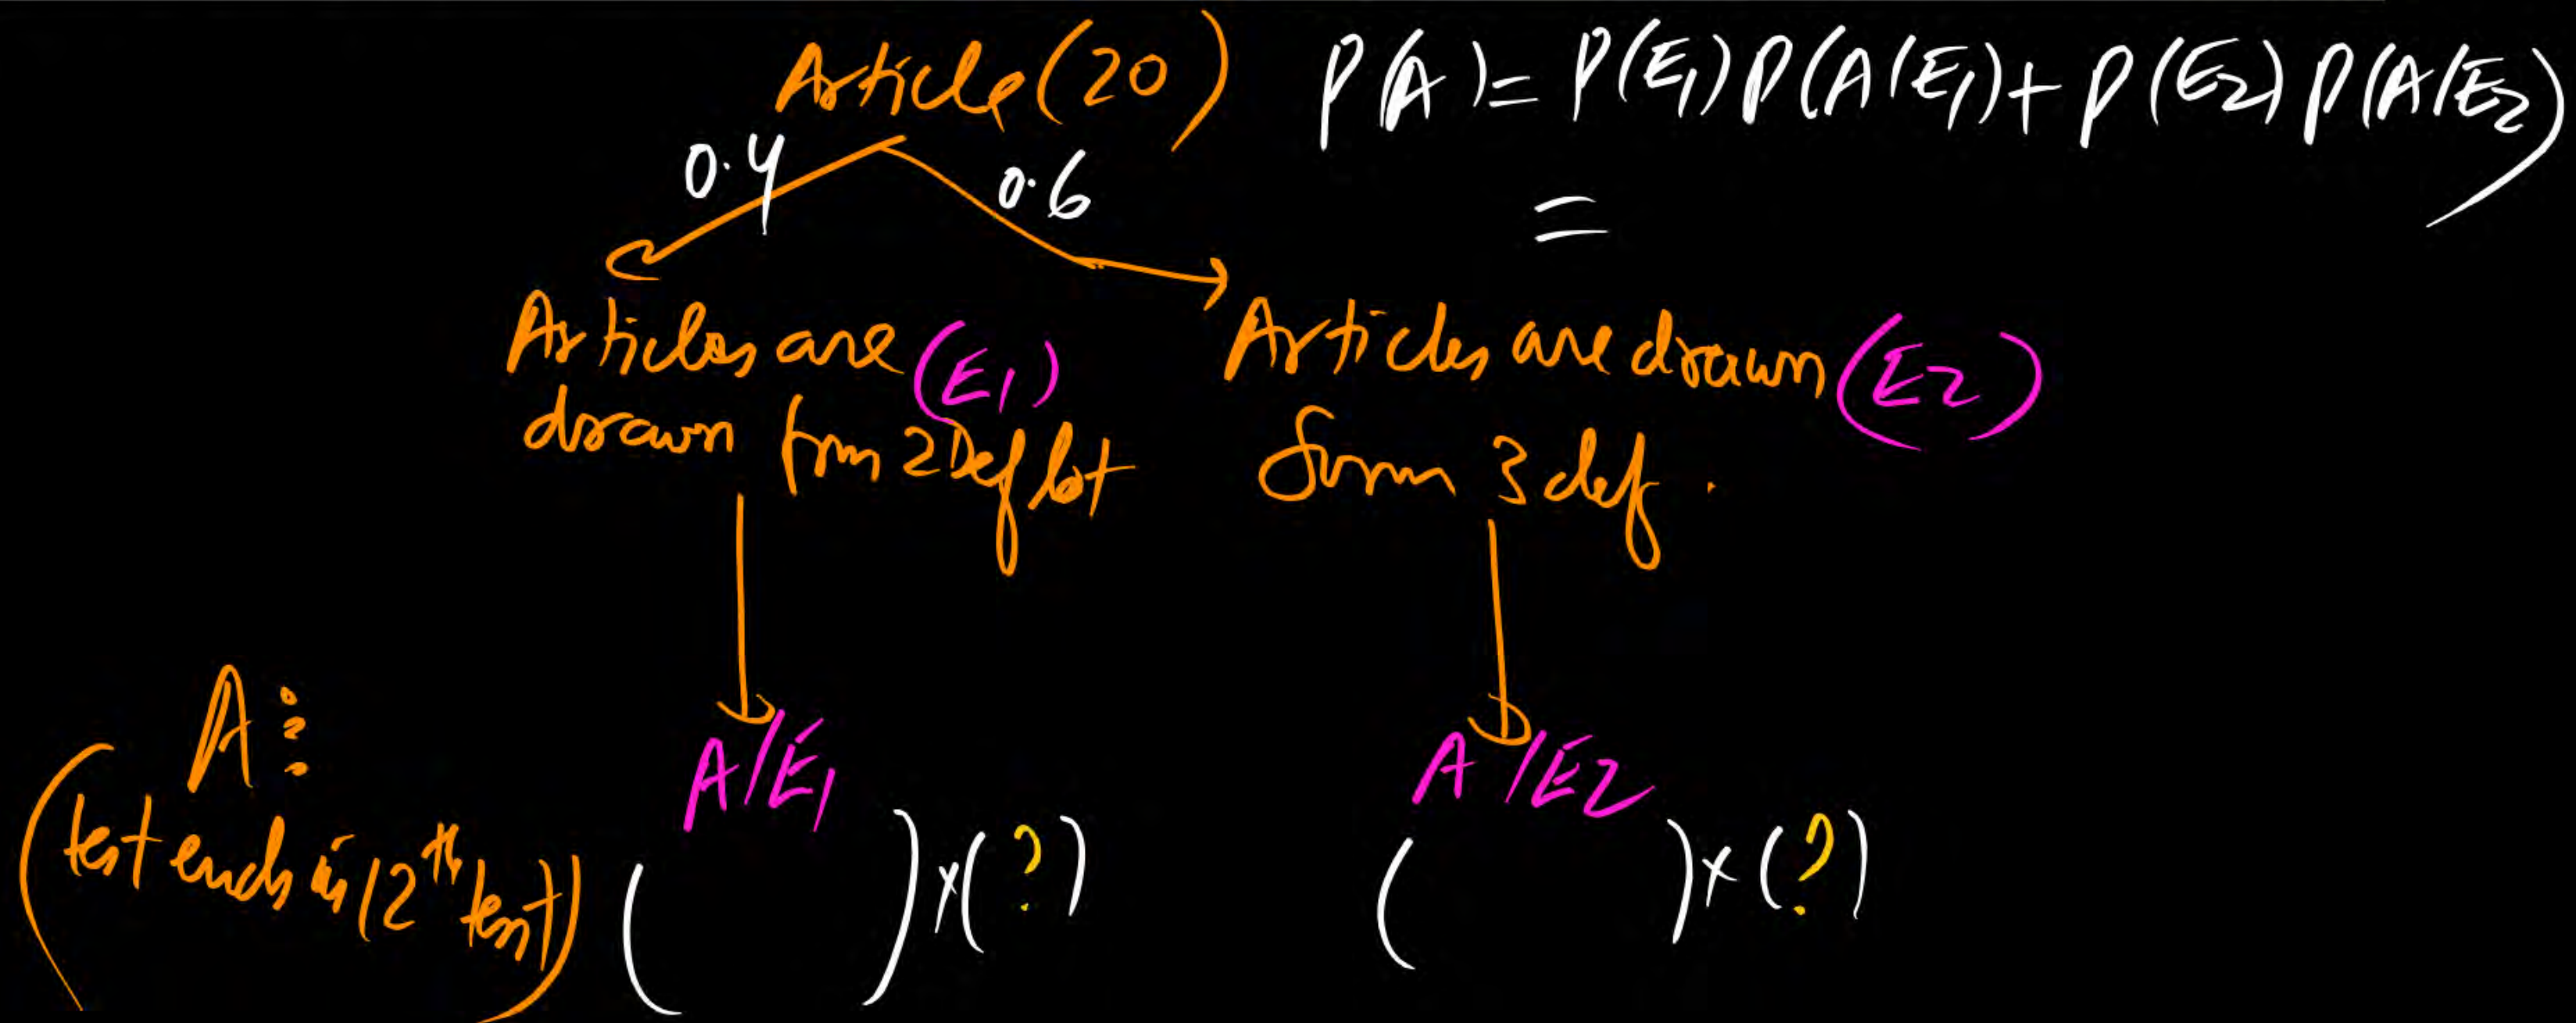 Article (20)
P(A) = P(E1) P(A/E1) + P(E2) P(A/E2)
0.4
0.6
=
Articles are (E1)
drawn from 2 Def lot
Articles are drawn (E2)
from 3 def.
A:
(test ends in 12th test)
A/E1
( ) × (?)
A/E2
( ) × (?)